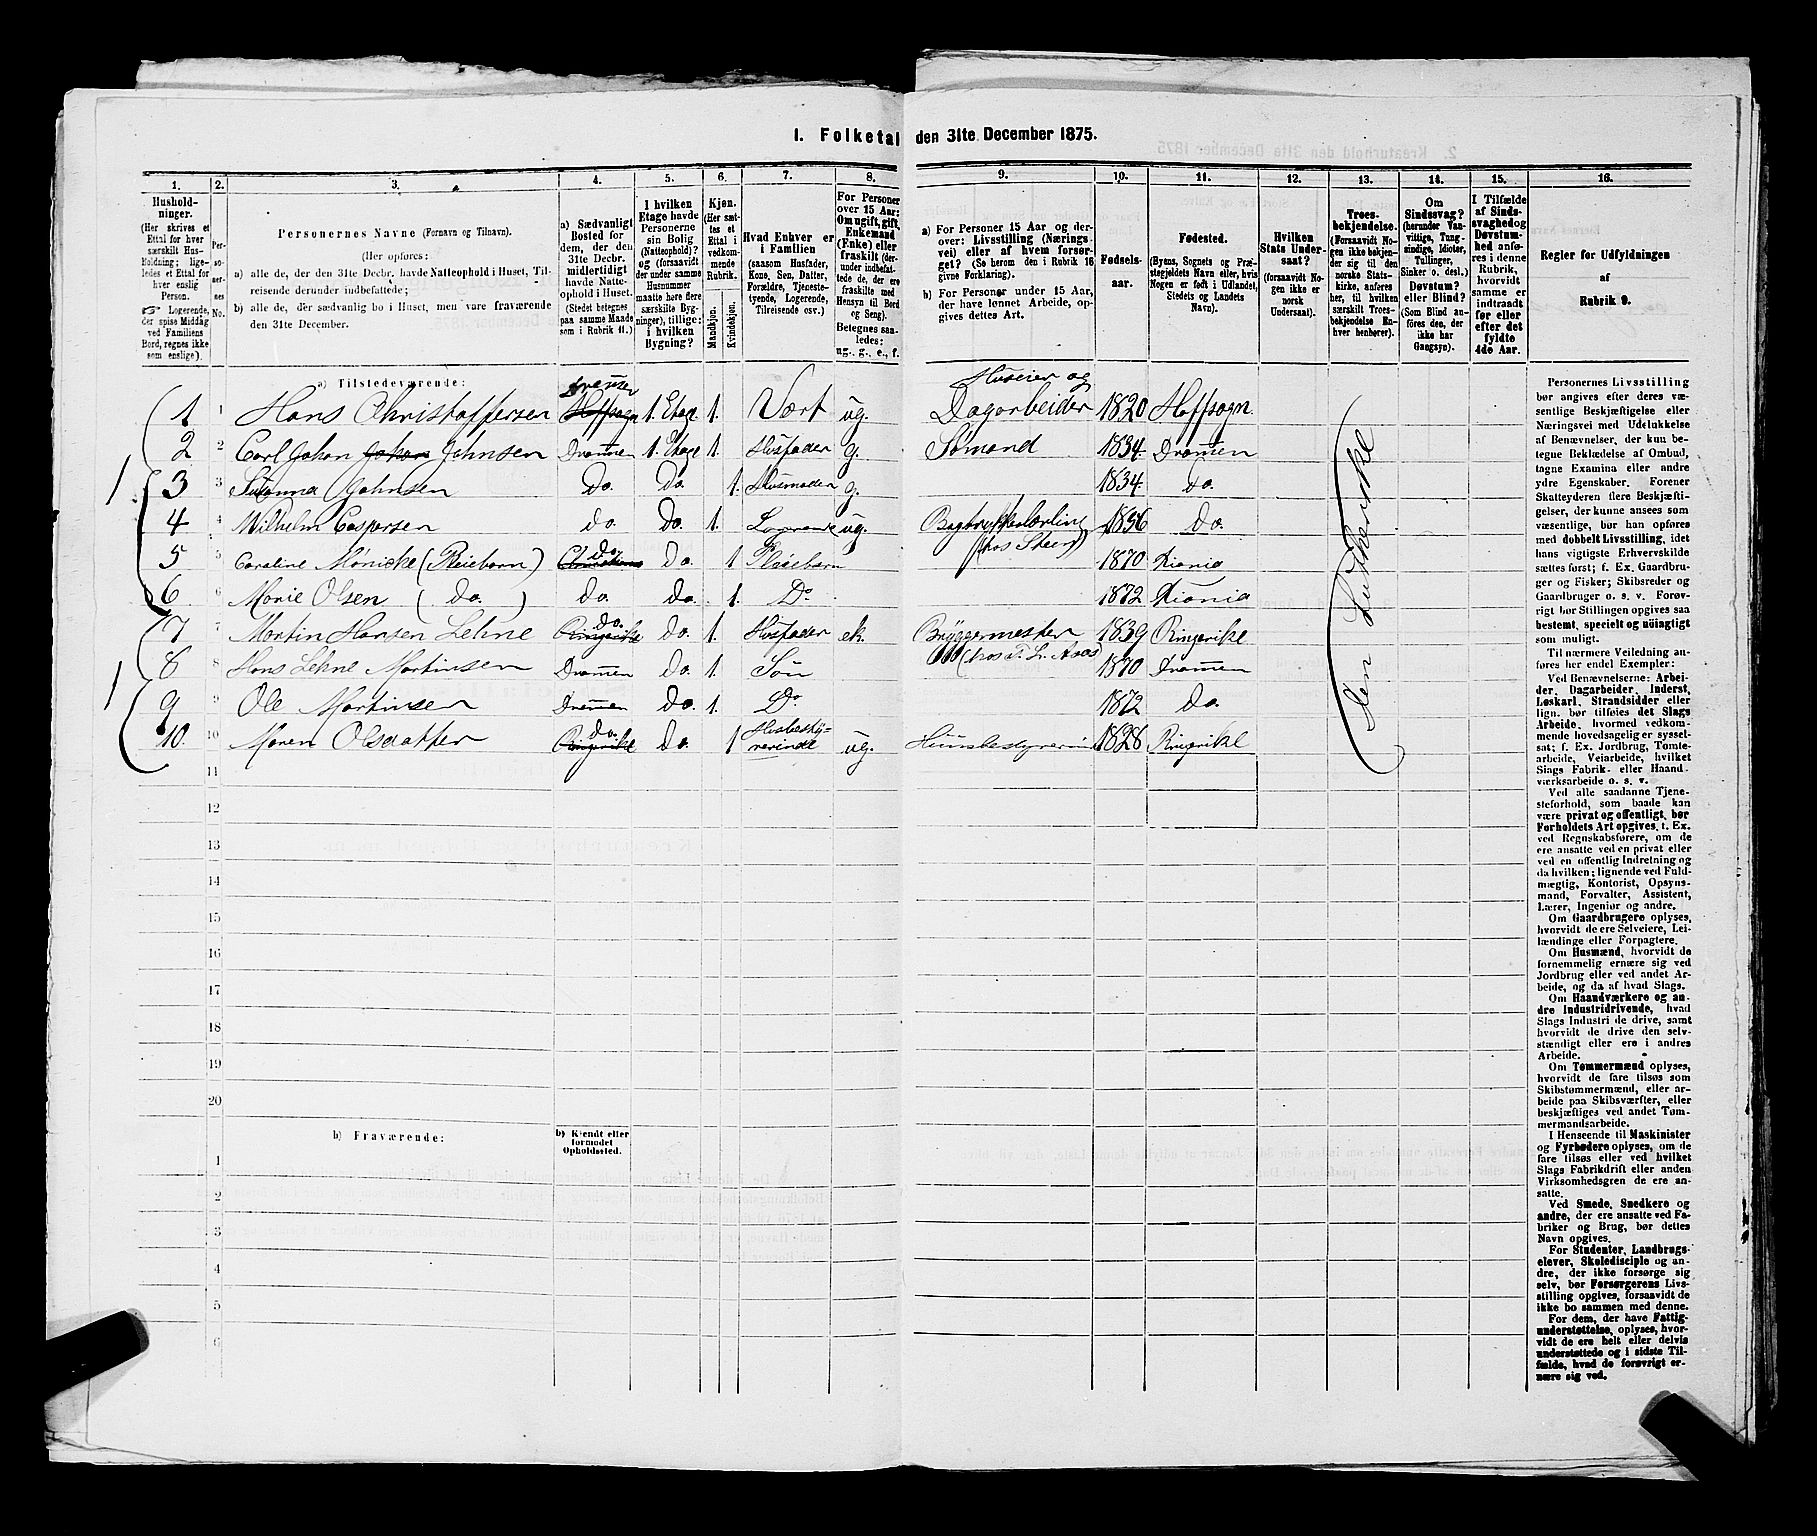 1. Folketal den 31te December 1875.
1. 2. 3. 4. 5. 6. 7. 8. 9. 10. 11. 12. 13. 14. 15. 16.
Hushold-
ninger.
(Her skrives et
Ettal for hver
særskilt Hus-
holdning; lige-
ledes et Ettal for
hver enslig
Person.
Logerende,
der spise Middag
ved Familiens
Bord, regnes ikke
som enslige).
Per-
so-
ner-
nes
No.
Personernes Navne (Fornavn og Tilnavn).
(Her opføres:
a) alle de, der den 31te Decbr. havde Natteophold i Huset, Til-
reisende derunder indbefattede;
b) alle de, der sædvanlig bo i Huset, men vare fraværende
den 31te December.
a) Sædvanligt
Bosted for
dem, der den
31te Decbr.
midlertidigt
havde Natte-
ophold i Huset.
(Stedet betegnes
paa samme Maade
som i Rubrik 11.)
I hvilken
Etage havde
Personerne
sin Bolig
(Natteophold)?
og (forsaavidt
der under samme
Husnummer
maatte høre flere
særskilte Byg-
ninger), tillige:
i hvilken
Bygning?
Kjøn.
(Her sæt-
tes et
Ettal i
vedkom-
mende
Rubrik.
Mandkjøn.
Kvindekjøn.
Hvad Enhver er
i Familien
(saasom Husfader,
Kone, Søn, Datter,
Forældre, Tjeneste-
tyende, Logerende,
Tilreisende osv.)
For Personer
over 15 Aar:
Om ugift, gift,
Enkemand
(Enke) eller
fraskilt (der-
under indbefat-
tede de, der ere
fraskilte med
Hensyn til Bord
og Seng).
Betegnes saa-
ledes:
ug., g., e., f.
a) For Personer 15 Aar og der-
over: Livsstilling (Nærings-
vei) eller af hvem forsør-
get? (Se herom den i Rubrik 16
givne Forklaring).
b) For Personer under 15 Aar,
der have lønnet Arbeide, op-
gives dettes Art.
Fødsels-
aar.
Fødested.
(Byens, Sognets og Præ-
stegjeldets Navn eller, hvis
Nogen er født i Udlandet,
Stedets og Landets
Navn).
Hvilken
Stats Under-
saat?
(forsaavidt No-
gen ikke er
norsk
Undersaat).
Troes-
bekjendelse.
(Forsaavidt No-
gen ikke bekjen-
der sig til den
norske Stats-
kirke, anføres
her, til hvilken
særskilt Troes-
bekjendelse En-
hver henhører).
Om
Sindssvag?
(herunder Van-
vittige, Tung-
sindige, Idioter,
Tullinger,
Sinker o. desl.)
Døvstum?
eller Blind?
(Som Blind an-
føres den, der
ikke har
Gangsyn).
I Tilfælde
af Sinds-
svaghed og
Døvstum-
hed anfø-
res i denne
Rubrik,
hvorvidt
samme er
indtraadt
før eller
efter det
fyldte
4de Aar.
Regler for Udfyldningen
af
Rubrik 9.
a) Tilstedeværende:
1 1 Hans Christoffersen Drammen Hoffsogn 1. Etage 1. Vært ug. Huseier og Dagarbeider 1820 Hoffsogn
2 2 Carl Johan Johan Johnsen Drammen 1. Etage 1. Husfader g. Sømand 1834 Drammen
1 3 3 Susanna Johnsen Do. Do. 1. Husmoder g. 1834. Do.
4 4 Wilhelm Caspersen Do. Do. 1. Logerende ug. (hos Steen) 1856 Do.
5 5 Caroline Mønicke (Pleiebarn) Do. Do. 1 Pleiebarn 1870 Xiania
6 6 Marie Olsen (Do.) Do. Do. 1. Do 1872 Xiania
7 7 Martin Hansen Lehne Do. Ringerike Do. 1. Husfader ek. Bryggermester 1839 Ringerike
8 8 Hans Lehne Martinsen Drammen Do. 1. Søn 1870 Drammen
1 9 9 Ole Martinsen Drammen Do. 1. Do 1872 Do.
10. 10 Maren Olsdatter Do. Ringerike Do. 1 Husbesty-
rerinde ug. Huusbestyrerinde 1828 Ringerike
Den Lutherske
11
12
13
14
15
16
17
18
19
20
b) Fraværende:
b) Kjendt eller
formodet
Opholdssted.
1
2
3
4
5
6
Personernes Livsstilling
bør angives efter deres væ-
sentlige Beskjæftigelse eller
Næringsvei med Udelukkelse
af Benævnelser, der kun be-
tegne Beklædelse af Ombud,
tagne Examina eller andre
ydre Egenskaber. Forener
Skatteyderen flere Beskjæfti-
gelser, der kunne ansees som
væsentlige, bør han opføres
med dobbelt Livsstilling, idet
hans vigtigste Erhvervskilde
sættes først; f. Ex. Gaardbru-
ger og Fisker; Skibsreder og
Gaardbruger o. s. v. Forøv-
rigt bør Stillingen opgives saa
bestemt, specielt og nøiagtigt
som muligt.
Til nærmere Veiledning an-
føres her endel Exempler:
Ved Benævnelserne: Arbei-
der, Dagarbeider, Inderst,
Løskarl, Strandsidder eller
lign. bør tilføies det Slags
Arbeide, hvormed vedkom-
mende hovedsagelig er syssel-
sat; f. Ex. Jordbrug, Tømte-
arbeide, Veiarbeide, hvilket
Slags Fabrik- eller Haand-
værksarbeide o. s. v.
Ved alle saadanne Tjene-
steforhold, som baade kan
være privat og offentligt, bør
Forholdets Art opgives, t. Ex.
ved Regnskabsførere, om de
ere ansatte ved en privat eller
ved en offentlig Indretning og
da hvilken; lignende ved Fuld-
mægtig, Kontorist, Opsyns-
mand, Forvalter, Assistent,
Lærer, Ingeniør og andre.
Om Gaardbrugere oplyses,
hvorvidt de ere Selveiere, Lei-
lændinge eller Forpagtere.
Om Husmænd, hvorvidt de
fornemmelig ernære sig ved
Jordbrug eller ved andet Ar-
beide, og da af hvad Slags.
Om Haandværkere og an-
dre Industridrivende, hvad
Slags Industri de drive, samt
hvorvidt de drive den selv-
stændigt eller ere i andres
Arbeide.
Om Tømmermænd oplyses,
hvorvidt de fare tilsøs som
Skibstømmermænd, eller ar-
beide paa Skibsværfter, eller
beskjæftiges ved andet Tøm-
mermandsarbeide.
I Henseende til Maskinister
og Fyrbødere oplyses, om de
fare tilsøs eller ved hvilket
Slags Fabrikdrift eller anden
Virksomhedsgren de ere an-
satte.
Ved Smede, Snedkere og
andre, der ere ansatte ved Fa-
briker og Brug, bør dettes
Navn opgives.
For Studenter, Landbrugs-
elever, Skoledisciple og an-
dre, der ikke forsørge sig
selv, bør Forsørgerens Livs-
stilling opgives, forsaavidt de
ikke bo sammen med denne.
For dem, der have Fattig-
understøttelse, oplyses, hvor-
vidt de ere helt eller delvis
understøttede og i sidste Til-
fælde, hvad de forøvrigt er-
nære sig ved.